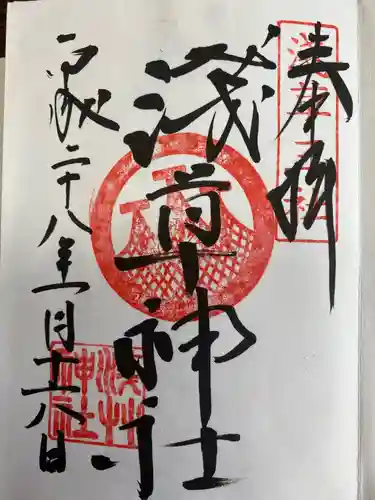 奉拝
浅草神社
平成二十八年一月十六日
浅草神社